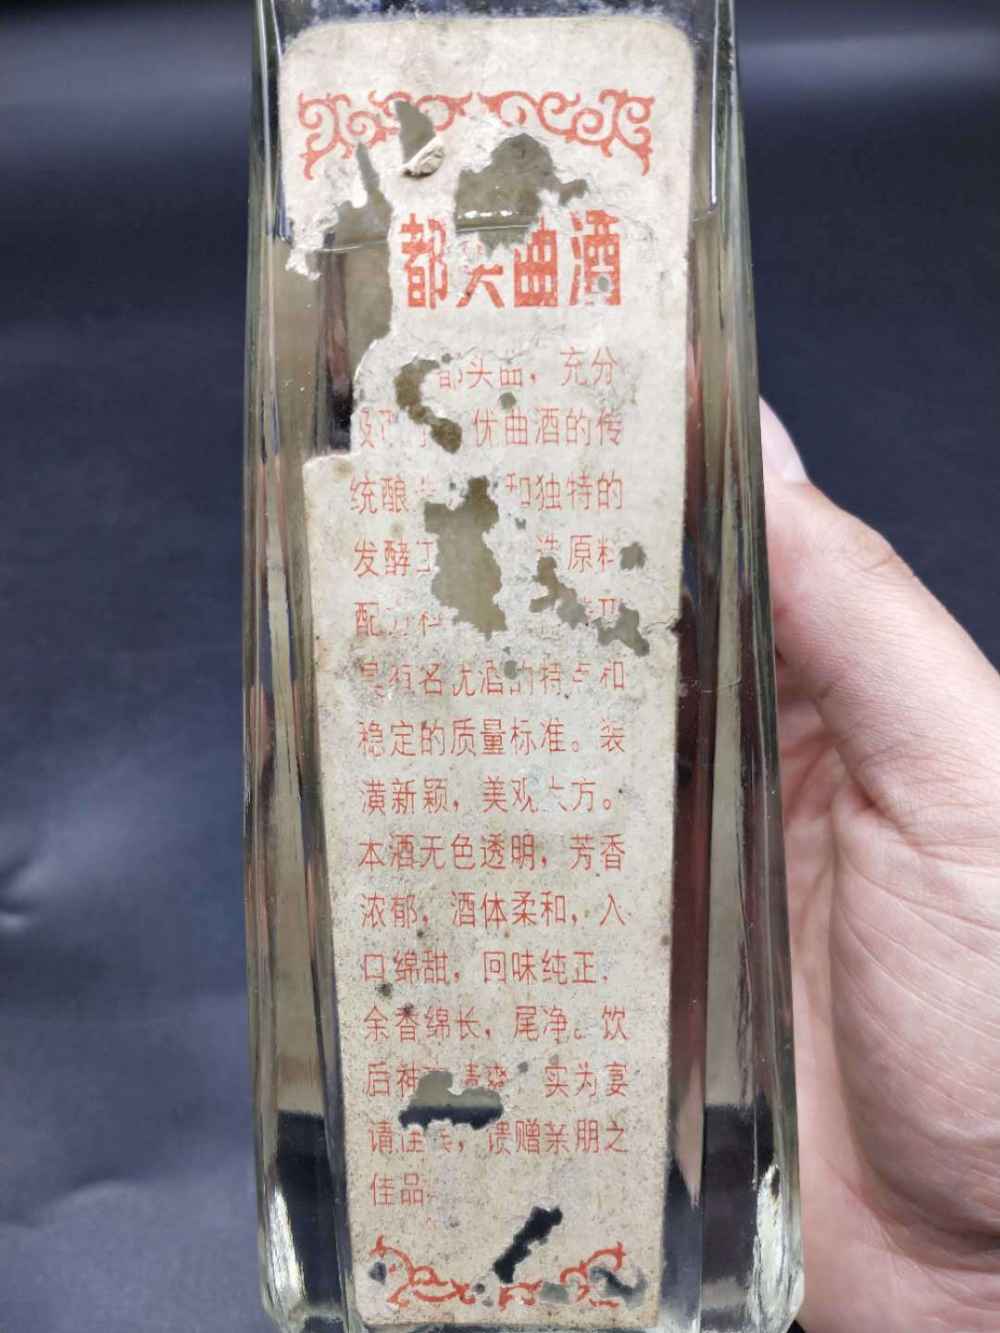 都头曲酒
都头曲，充分
优曲酒的传
统酿 和独特的
发酵工 选原料
配方科
具有名优酒的特点和
稳定的质量标准。装
潢新颖，美观大方。
本酒无色透明，芳香
浓郁，酒体柔和，入
口绵甜，回味纯正，
余香绵长，尾净。饮
后神 清爽 实为宴
请佳 ，馈赠亲朋之
佳品。